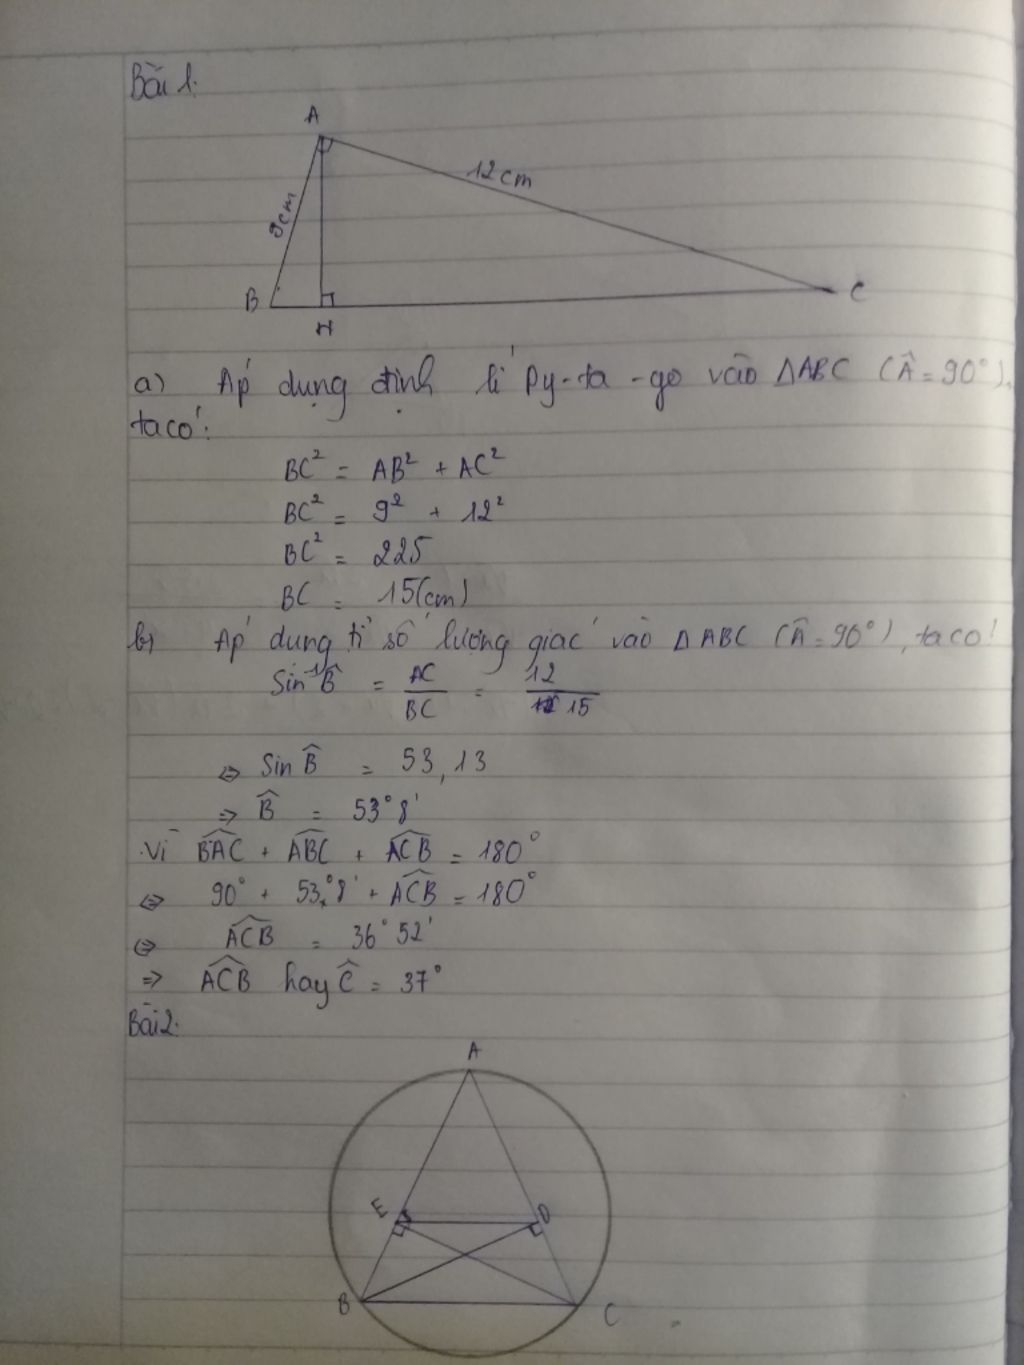 Bài 1.
A
12cm
9cm
B
H
C
a) Áp dụng định lí Py-ta-go vào ΔABC (Â = 90°),
ta có:
BC² = AB² + AC²
BC² = 9² + 12²
BC² = 225
BC = 15(cm)
b) Áp dụng tỉ số lượng giác vào ΔABC (Â = 90°), ta có:
Sin⁻¹B̂ = AC/BC = 12/15
⇔ Sin B̂ = 53,13
=> B̂ = 53°8'
Vì BAC + ABC + ACB = 180°
⇔ 90° + 53°8' + ACB = 180°
⇔ ACB = 36°52'
=> ACB hay Ĉ = 37°
Bài 2.
A
E
D
B
C